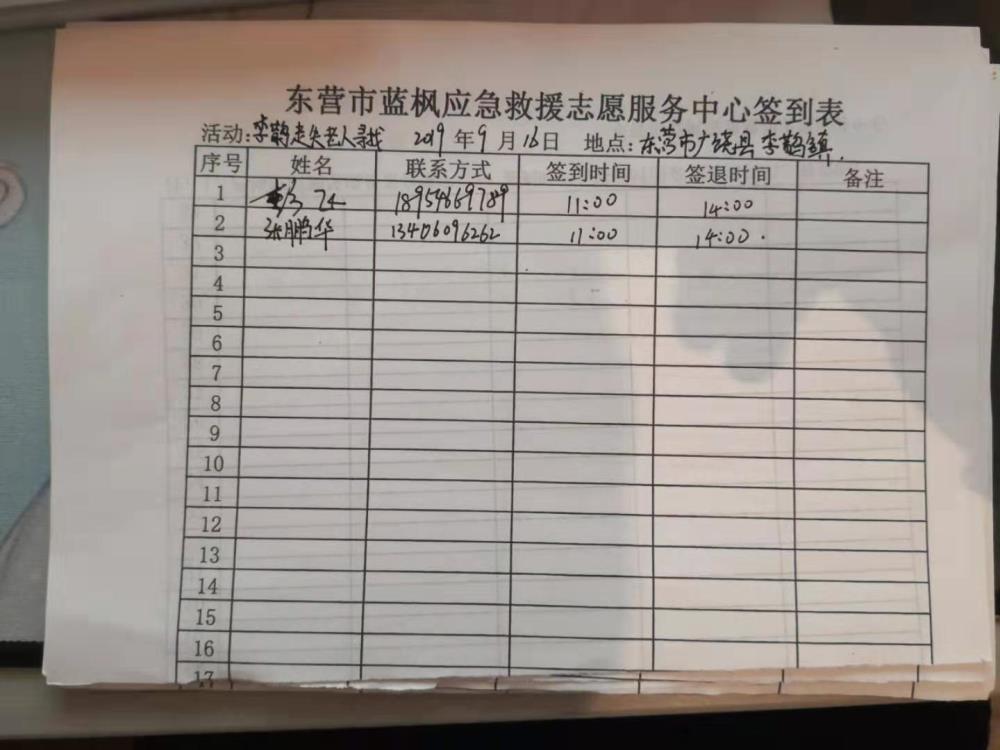 东营市蓝枫应急救援志愿服务中心签到表
活动:李鹊走失老人寻找 2019年9月16日 地点:东营市广饶县李鹊镇.
序号 姓名 联系方式 签到时间 签退时间 备注
1 18954669789 11:00 14:00
2 张鹏华 13406096262 11:00 14:00.
3
4
5
6
7
8
9
10
11
12
13
14
15
16
17